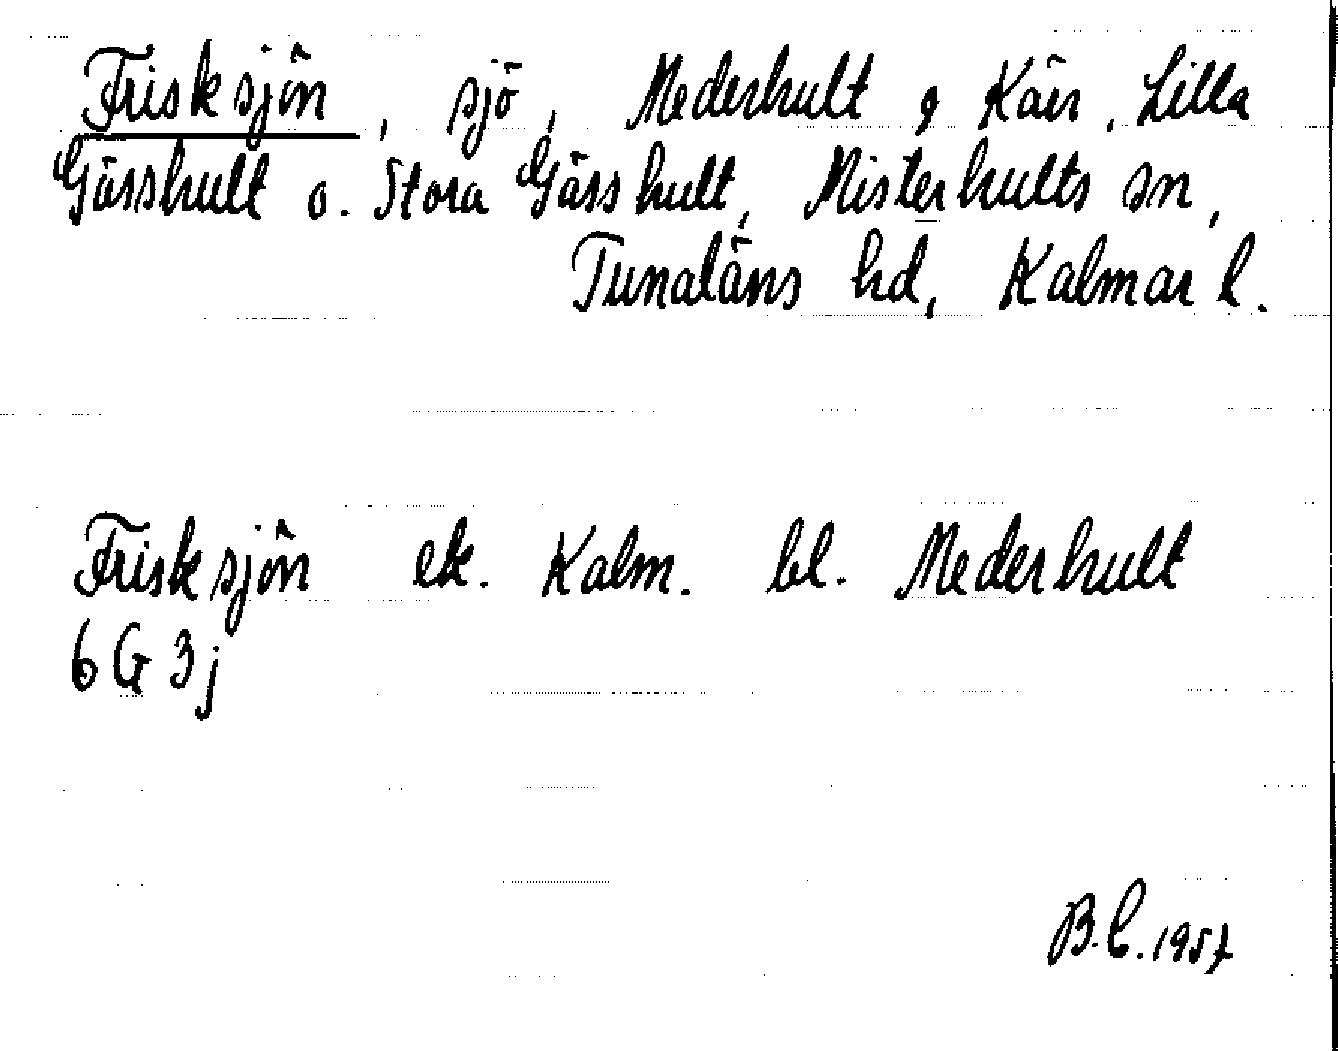 Frisksjön, sjö, Mederhult, Kärr, Lilla
Gässhult o. Stora Gässhult, Misterhults sn,
Tunaläns hd, Kalmar l.
Frisksjön ek. Kalm. bl. Mederhult
6 G 3 j
B.C. 1957